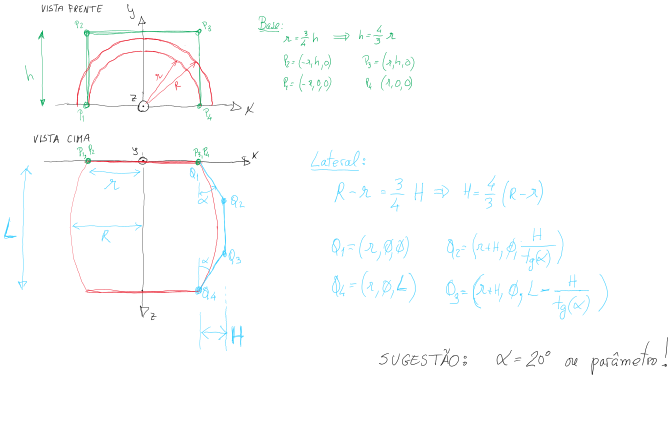 VISTA FRENTE
y
P2
P3
h
r
R
z
x
P1
P4
Base:
r = 3/4 h ⟹ h = 4/3 r
P2 = (-r, h, 0) P3 = (r, h, 0)
P1 = (-r, 0, 0) P4 (r, 0, 0)
VISTA CIMA
P1, P2
y
P3, P4
x
r
Q1
α
Q2
L
R
Q3
α
Q4
z
H
Lateral:
R - r = 3/4 H ⟹ H = 4/3 (R - r)
Q1 = (r, ∅, ∅) Q2 = (r+H, ∅, H/tg(α))
Q4 = (r, ∅, L) Q3 = (r+H, ∅, L - H/tg(α))
SUGESTÃO: α = 20° ou parâmetro!